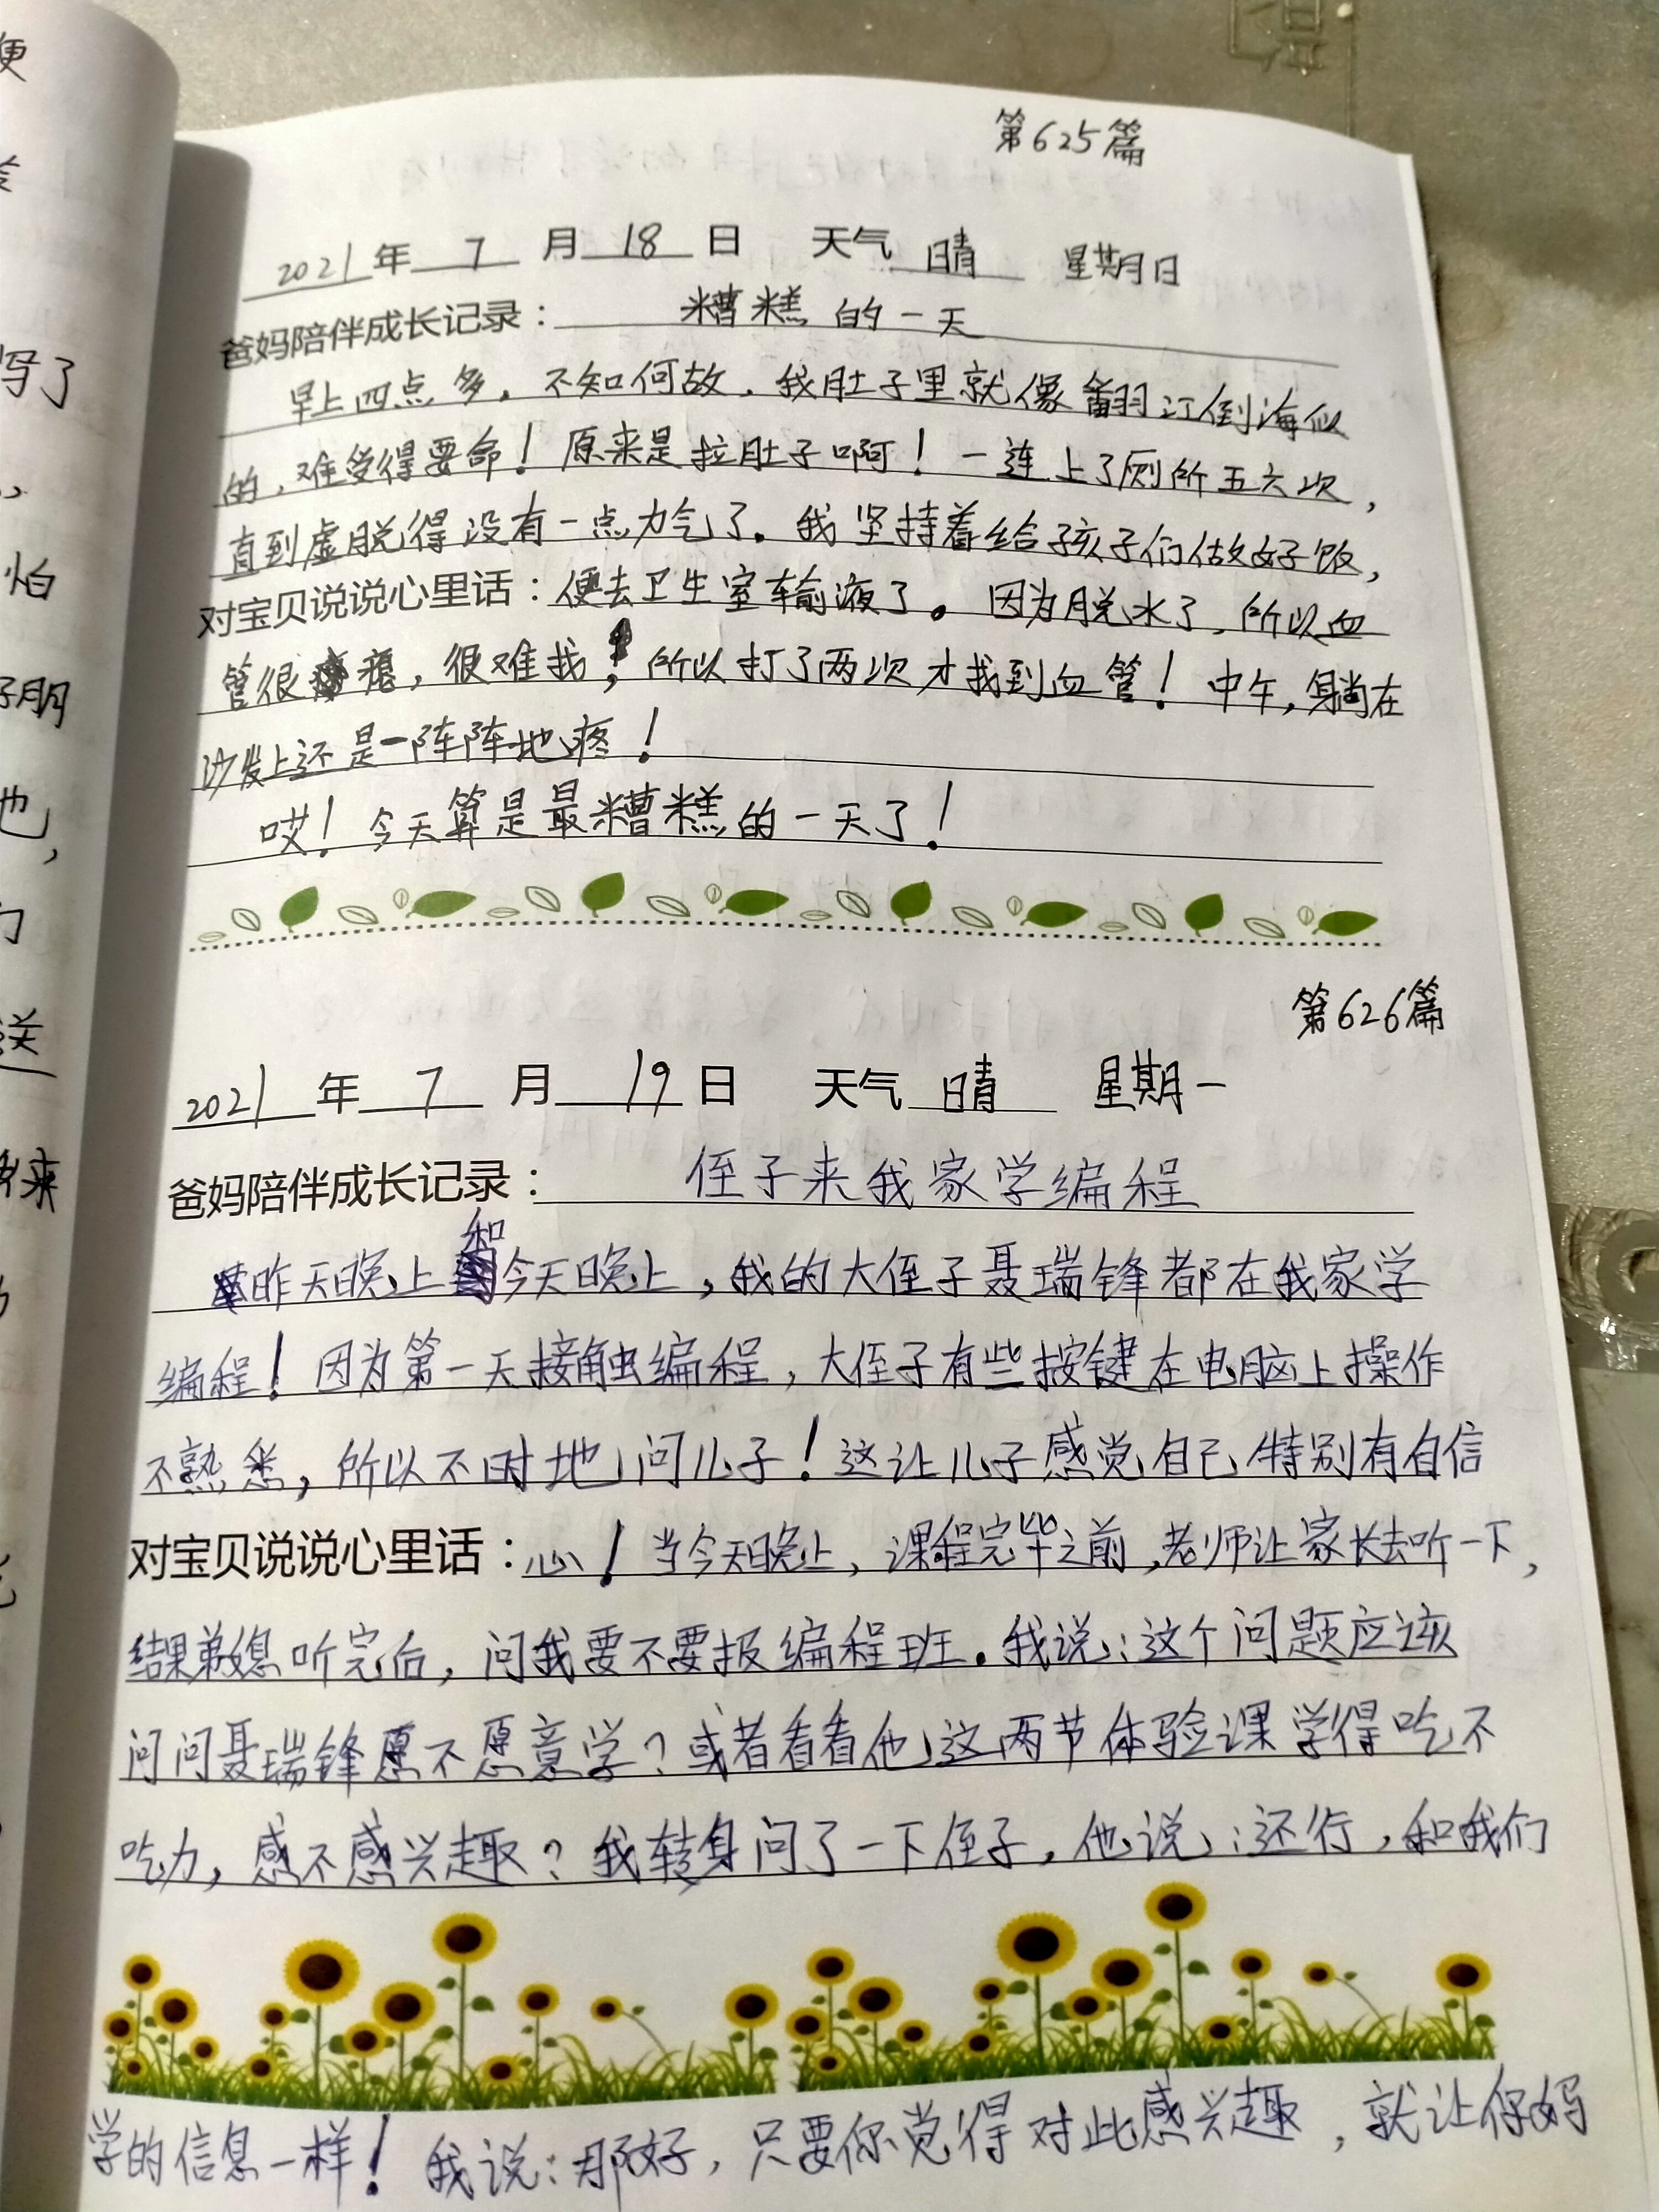 第625篇
2021年 7 月 18 日 天气 晴 星期日
爸妈陪伴成长记录: 糟糕的一天
早上四点多,不知何故,我肚子里就像翻江倒海似
的,难受得要命!原来是拉肚子啊!一连上了厕所五六次,
直到虚脱得没有一点力气了。我坚持着给孩子们做好饭,
对宝贝说说心里话:便去卫生室输液了。因为脱水了,所以血
管很瘪,很难找,所以打了两次才找到血管!中午,躺在
沙发上还是一阵阵地疼!
哎!今天算是最糟糕的一天了!
第626篇
2021 年 7 月 19 日 天气 晴 星期一
爸妈陪伴成长记录: 侄子来我家学编程
昨天晚上和今天晚上,我的大侄子聂瑞锋都在我家学
编程!因为第一天接触编程,大侄子有些按键在电脑上操作
不熟悉,所以不时地问儿子!这让儿子感觉自己特别有自信
对宝贝说说心里话:心!当今天晚上,课程完毕之前,老师让家长去听一下,
结果弟媳听完后,问我要不要报编程班。我说:这个问题应该
问问聂瑞锋愿不愿意学?或者看看他这两节体验课学得吃不
吃力,感不感兴趣?我转身问了一下侄子,他说:还行,和我们
学的信息一样!我说:那好,只要你觉得对此感兴趣,就让你妈
便
写了
怕
也,
门
送
来